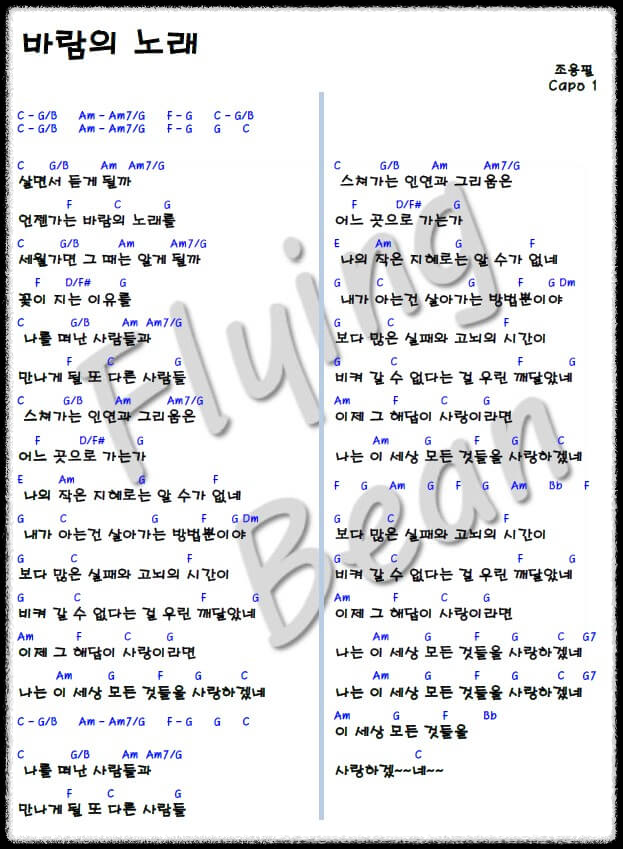 바람의 노래
조용필
Capo 1
C - G/B Am - Am7/G F - G C - G/B
C - G/B Am - Am7/G F - G G C
C G/B Am Am7/G
살면서 듣게 될까
F C G
언젠가는 바람의 노래를
C G/B Am Am7/G
세월가면 그 때는 알게 될까
F D/F# G
꽃이 지는 이유를
C G/B Am Am7/G
나를 떠난 사람들과
F C G
만나게 될 또 다른 사람들
C G/B Am Am7/G
스쳐가는 인연과 그리움은
F D/F# G
어느 곳으로 가는가
E Am G F
나의 작은 지혜로는 알 수가 없네
G C G F G Dm
내가 아는건 살아가는 방법뿐이야
G C F
보다 많은 실패와 고뇌의 시간이
G C F G
비켜 갈 수 없다는 걸 우린 깨달았네
Am F C G
이제 그 해답이 사랑이라면
Am G F G C
나는 이 세상 모든 것들을 사랑하겠네
C - G/B Am - Am7/G F - G G C
C G/B Am Am7/G
나를 떠난 사람들과
F C G
만나게 될 또 다른 사람들
C G/B Am Am7/G
스쳐가는 인연과 그리움은
F D/F# G
어느 곳으로 가는가
E Am G F
나의 작은 지혜로는 알 수가 없네
G C G F G Dm
내가 아는건 살아가는 방법뿐이야
G C F
보다 많은 실패와 고뇌의 시간이
G C F G
비켜 갈 수 없다는 걸 우린 깨달았네
Am F C G
이제 그 해답이 사랑이라면
Am G F G C
나는 이 세상 모든 것들을 사랑하겠네
F G Am G F G Am Bb F
G C F
보다 많은 실패와 고뇌의 시간이
G C F G
비켜 갈 수 없다는 걸 우린 깨달았네
Am F C G
이제 그 해답이 사랑이라면
Am G F G C G7
나는 이 세상 모든 것들을 사랑하겠네
Am G F G C G7
나는 이 세상 모든 것들을 사랑하겠네
Am G F Bb
이 세상 모든 것들을
C
사랑하겠~~네~~
Flying
Bean